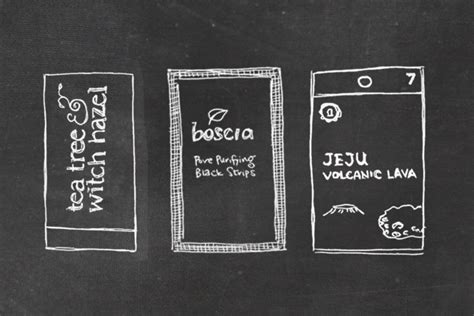 tea tree &
witch hazel
boscia
Pore Purifying
Black Strips
7
JEJU
VOLCANIC LAVA